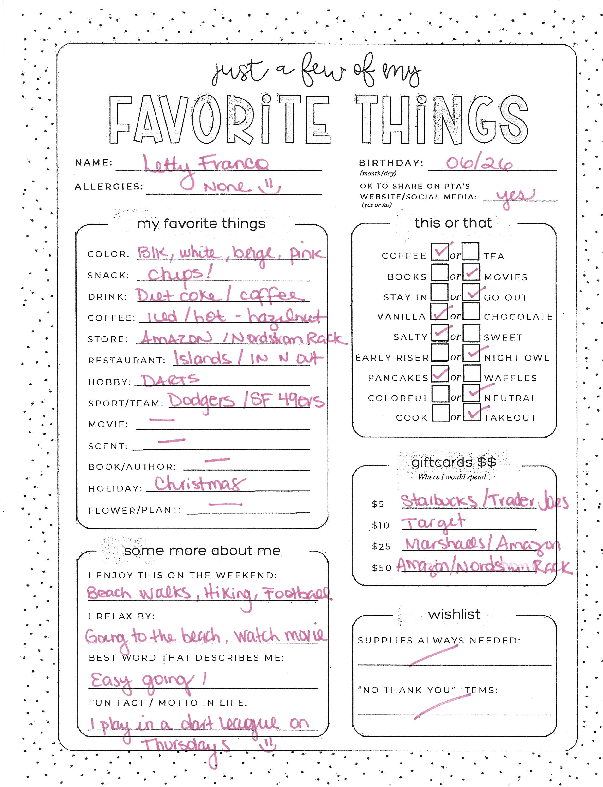 just a few of my
FAVORITE THINGS
NAME: Letty Franco
ALLERGIES: None
BIRTHDAY: 06/26
(month/day)
OK TO SHARE ON PTA'S
WEBSITE/SOCIAL MEDIA: yes
(yes or no)
my favorite things
COLOR: Blk, white, beige, pink
SNACK: chips!
DRINK: Diet coke / coffee
COFFEE: iced/hot - hazelnut
STORE: Amazon / Nordstrom Rack
RESTAURANT: Islands / IN N OUT
HOBBY: DARTS
SPORT/TEAM: Dodgers / SF 49ers
MOVIE: —
SCENT: —
BOOK/AUTHOR: —
HOLIDAY: Christmas
FLOWER/PLANT: —
this or that
COFFEE ✓ or TEA
BOOKS or ✓ MOVIES
STAY IN or ✓ GO OUT
VANILLA ✓ or CHOCOLATE
SALTY ✓ or SWEET
EARLY RISER or ✓ NIGHT OWL
PANCAKES ✓ or WAFFLES
COLORFUL or ✓ NEUTRAL
COOK or ✓ TAKEOUT
giftcards $$
Where I would spend
$5 Starbucks / Trader Joes
$10 Target
$25 Marshalls / Amazon
$50 Amazon/Nordstrom Rack
some more about me
I ENJOY THIS ON THE WEEKEND:
Beach walks, Hiking, Football
I RELAX BY:
Going to the beach, watch movie
BEST WORD THAT DESCRIBES ME:
Easy going!
FUN FACT / MOTTO IN LIFE:
I play in a dart league on
Thursdays
wishlist
SUPPLIES ALWAYS NEEDED:
"NO THANK YOU" ITEMS: